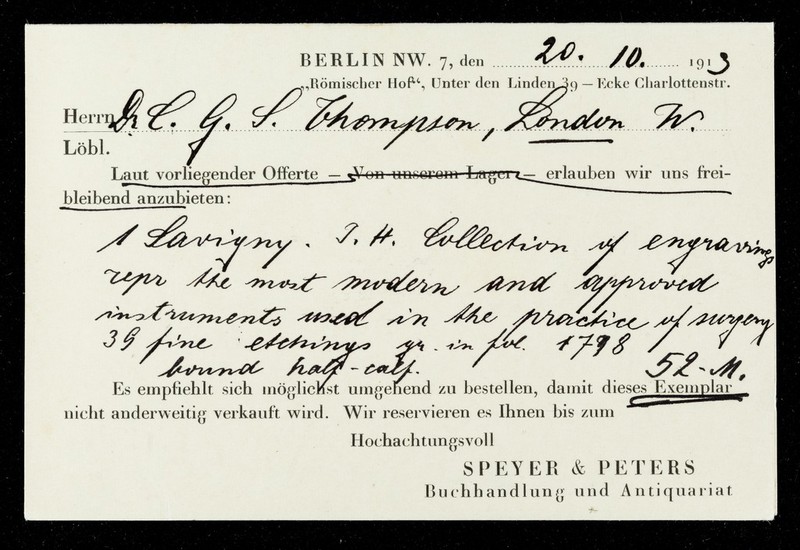 BERLIN NW. 7, den 20. 10. 1913
„Römischer Hof“, Unter den Linden 39 — Ecke Charlottenstr.
Herrn Dr C. G. S. Thompson, London W.
Löbl.
Laut vorliegender Offerte — Von unserem Lager — erlauben wir uns frei-
bleibend anzubieten:
1 Savigny. J. H. Collection of engravings
repr the most modern and approved
instruments used in the practice of surgery
39 fine etchings gr. in fol. 1798
bound half-calf. 52-M.
Es empfiehlt sich möglichst umgehend zu bestellen, damit dieses Exemplar
nicht anderweitig verkauft wird. Wir reservieren es Ihnen bis zum
Hochachtungsvoll
SPEYER & PETERS
Buchhandlung und Antiquariat